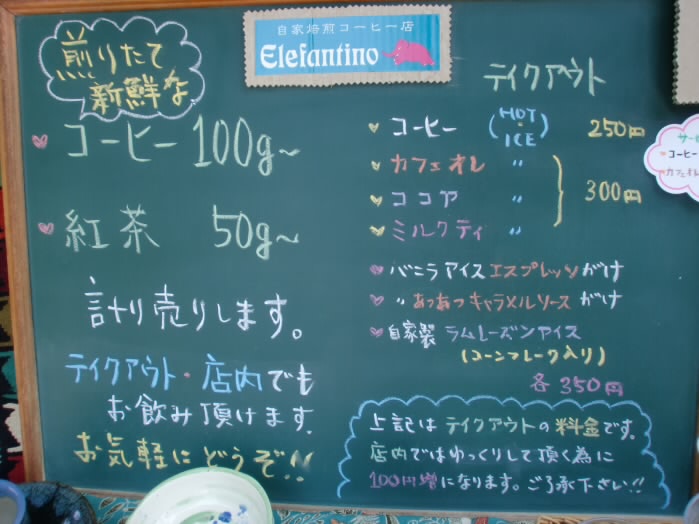 自家焙煎コーヒー店
Elefantino
煎りたて
新鮮な
コーヒー 100g~
紅茶 50g~
計り売りします。
テイクアウト・店内でも
お飲み頂けます.
お気軽にどうぞ!!
テイクアウト
コーヒー (HOT・ICE) 250円
カフェオレ 〃
ココア 〃 300円
ミルクティ 〃
バニラアイスエスプレッソがけ
〃 あつあつキャラメルソースがけ
自家製 ラムレーズンアイス
(コーンフレーク入り)
各350円
上記はテイクアウトの料金です。
店内ではゆっくりして頂く為に
100円増になります。ご了承下さい!!
コーヒ
カフェオレ